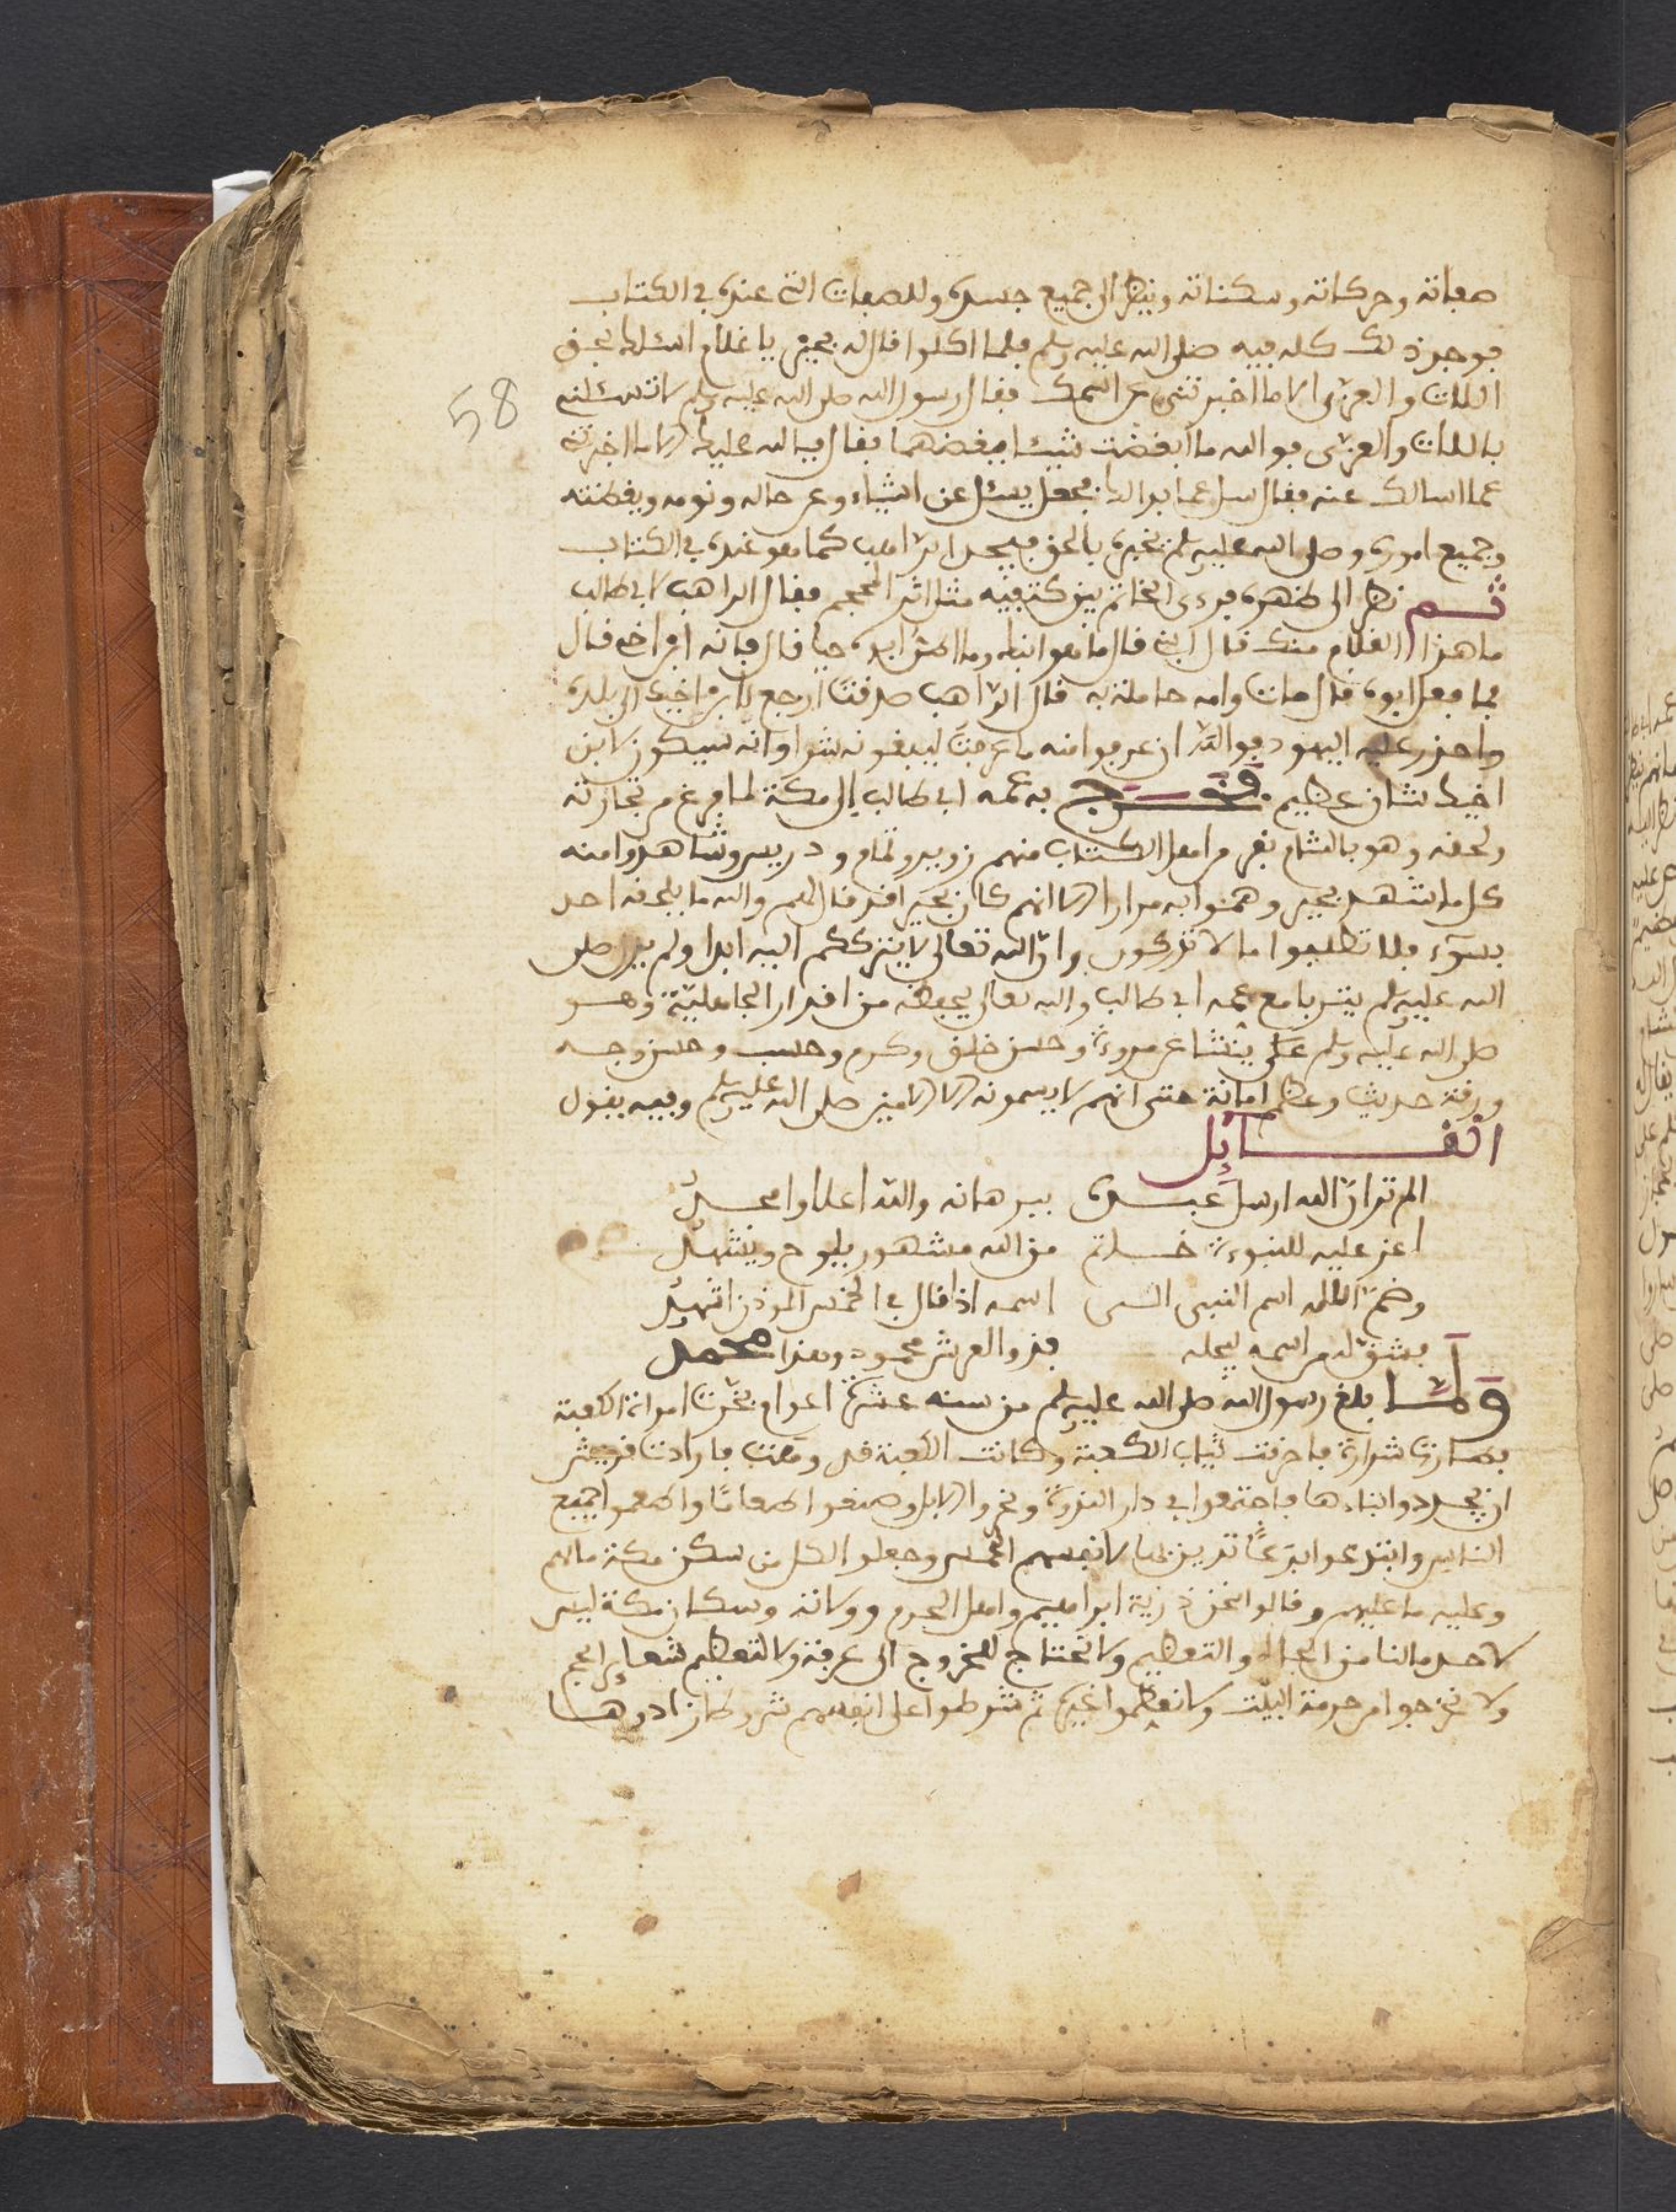 صفاته وحركاته وسكناته وينظر الى جميع جسده وللصفات التى عنده في الكتاب
فوجد ذلك كله فيه صلى الله عليه وسلم فلما اكلوا قال له بحيرى يا غلام اسئلك بحق
اللات والعزى الا ما اخبرتنى عن اسمك فقال رسول الله صلى الله عليه وسلم لا تسئلنى
باللات والعزى فو الله ما ابغضت شيئا ابغضهما فقال فبالله عليك الا ما اخبرتنى
عما اسالك عنه فقال سل عما بدا لك فجعل يسئل عن اشياء وعن حاله ونومه ويقظته
وجميع اموره وصلى الله عليه وسلم يخبره بالحق فيجد الراهب كما هو عنده في الكتاب
ثم نظر الى ظهره فرءى الخاتم بين كتفيه مثل اثر المحجم فقال الراهب لابى طالب
ما هذا الغلام منك قال ابنى قال ما هو ابنك وما اظن ابوه حيا قال فانه ابن اخى قال
فما فعل ابوه قال مات وامه حاملة به قال الراهب صدقت ارجع بابن اخيك الى بلده
واحذر عليه اليهود فو الله ان عرفوا منه ما عرفت ليبغونه شرا وانه سيكون لابن
اخيك شان عظيم فخرج به عمه ابى طالب الى مكة لما فرغ من تجارته
ولحقه وهو بالشام نفر من اهل الكتاب منهم زوير وتمام ودريس وشاهدوا منه
كل ما شهد بحيرى وهموا به مرارا الا انهم كان بحيرا قد قال لهم والله ما يلحقه احد
بسوء فلا تطلبوا ما لا تدركون وان الله تعالى لا يترككم اليه ابدا ولم يزل صلى
الله عليه وسلم يتربا مع عمه ابى طالب والله تعالى يحفظه من اقدار الجاهلية وهو
صلى الله عليه وسلم على ينشا عن مروءة وحسن خلق وكرم وحسب وحسن وجه
ورقة حديث وعظم امانة حتى انهم لا يسمونه الا الامين صلى الله عليه وسلم وفيه يقول
القائل
الم تر ان الله ارسل عبده ببرهانه والله اعلا وامجد
اغر عليه للنبوءة خاتم من الله مشهور يلوح ويشهد
وضم الله اسم النبى الى اسمه اذا قال في الخمس الموذن اشهد
فشق له من اسمه ليجله فذو العرش محمود وهذا محمد
ولما بلغ رسول الله صلى الله عليه وسلم من سنه عشرة اعوام بخرت امراة الكعبة
فطارت شرارة فاحرقت ثياب الكعبة وكانت الكعبة قد وهنت فارادت قريش
ان يجددوا بناءها فاجتمعوا في دار الندوة ونحروا الابل وصنعوا طعاما واطعموا جميع
الناس وابتدعوا بدعا تدين بها لانفسهم الحمس وجعلوا لكل من سكن مكة ما لهم
وعليه ما عليهم وقالوا نحن ذرية ابراهيم واهل الحرم وولاته وسكان مكة ليس
لاحد ما لنا من الجاه والتعظيم ولا نحتاج للخروج الى عرفة ولا لتعظيم شعاير الحج
ولا نخرجوا من حرمة البيت ولا نعظموا غيره ثم شرطوا على انفسهم شروطا زادوها
58